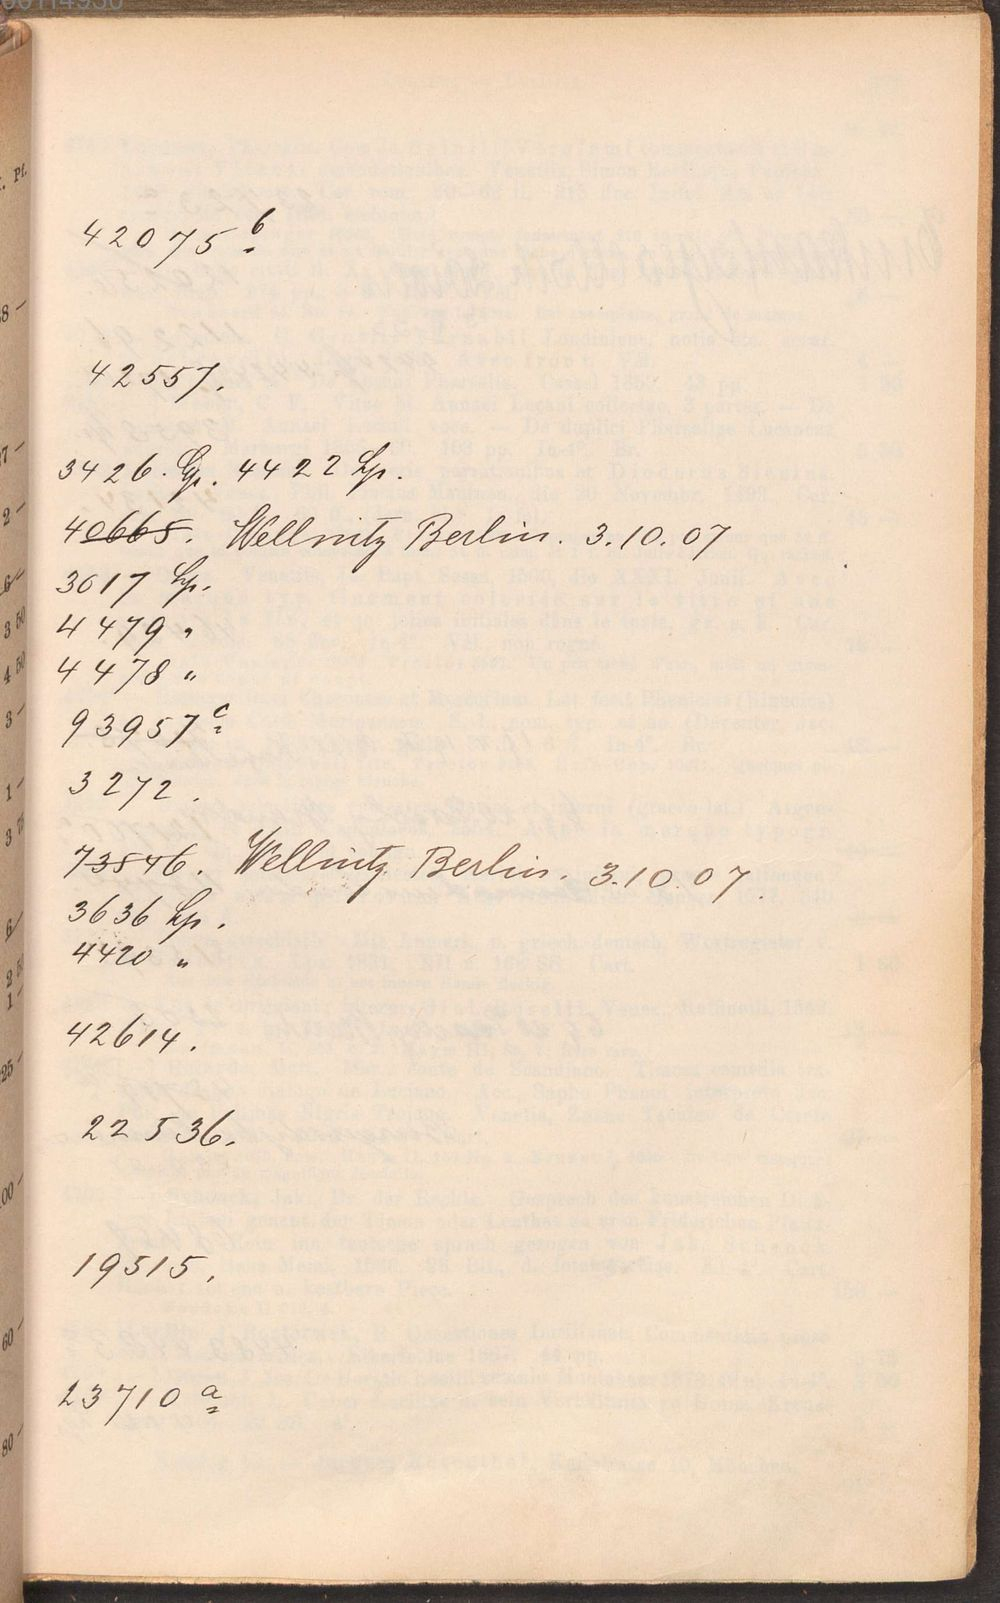 42075 b
42557.
3426. Lp. 4422 Lp.
40665. Wellnitz Berlin. 3.10.07
3017 Lp.
4479 "
4478 "
93957 c
3272.
73546. Wellnitz Berlin. 3.10.07
3636 Lp.
4420 "
42614.
22536.
19515.
23710 a